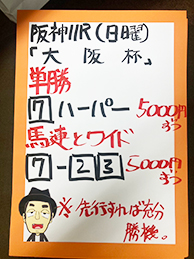 阪神11R(日曜)
「大阪杯」
単勝
7 ハーパー 5000円ずつ
馬連とワイド
7-23 5000円ずつ
※先行すれば充分
勝機。